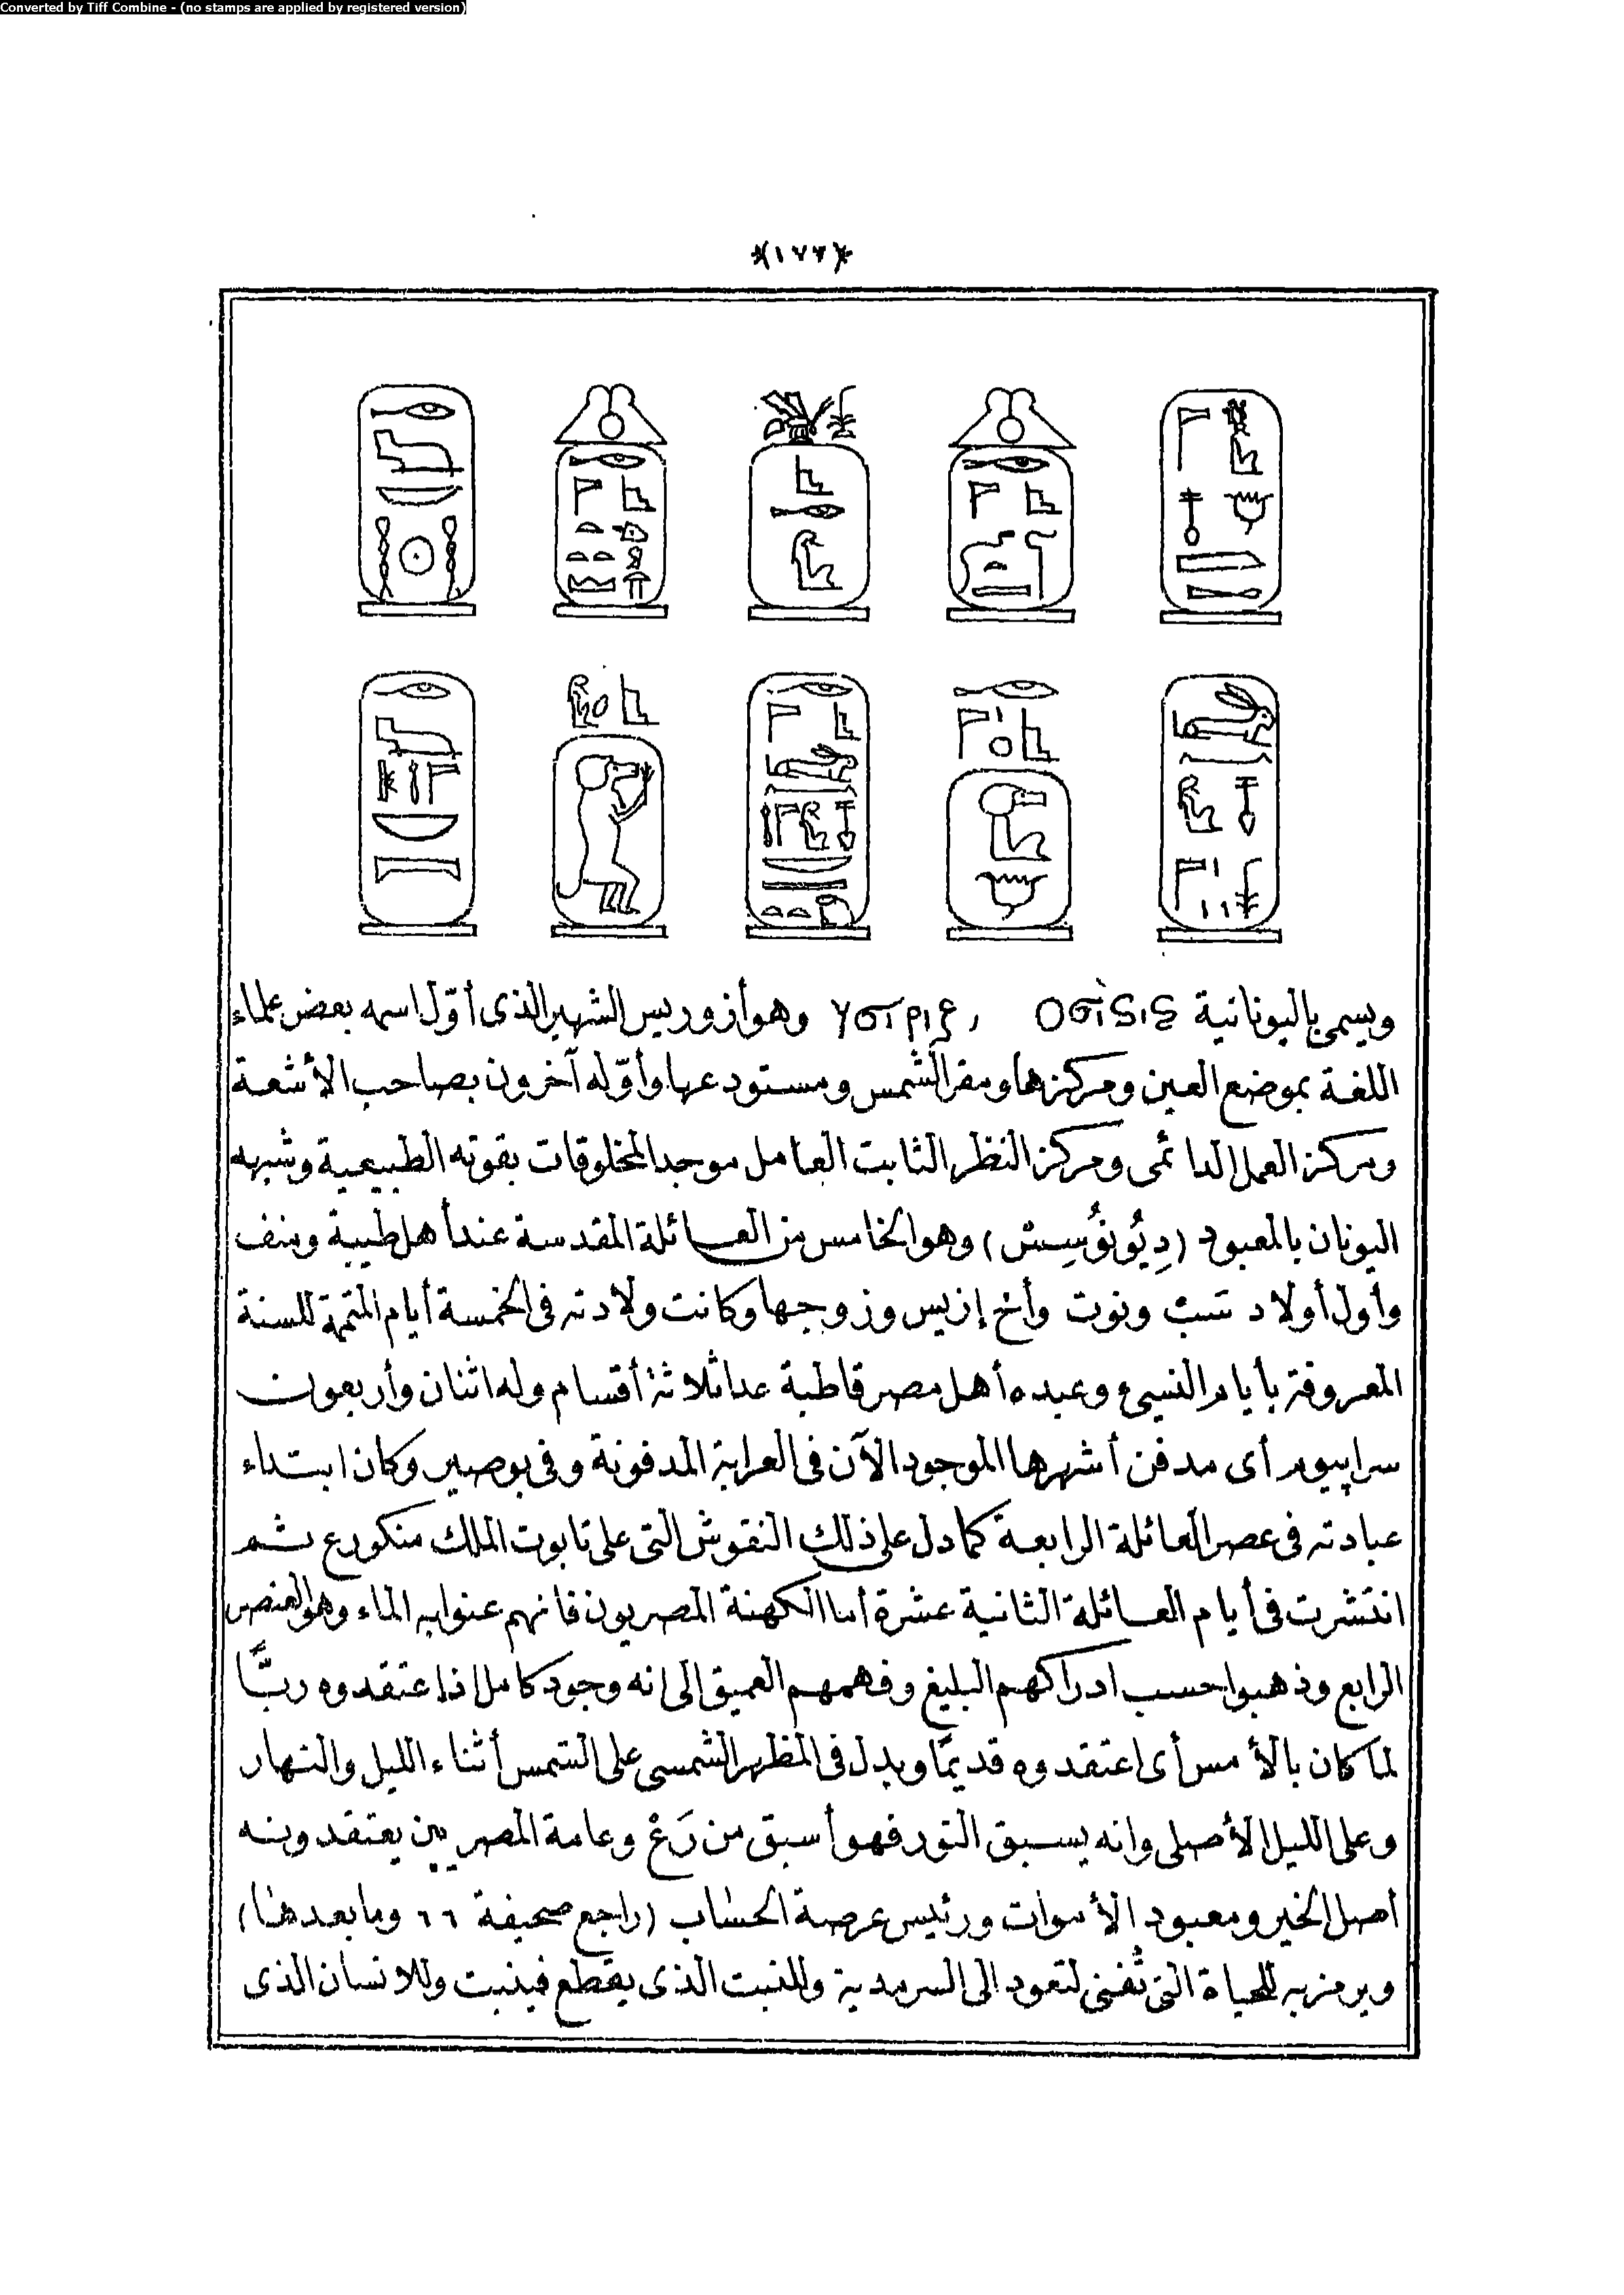 Converted by Tiff Combine - (no stamps are applied by registered version)
*(١٧٧)*
ويسمى باليونانية ΟσiSiS , وهو أزوريس الشهير الذى أوّل اسمه بعض علماء
اللغة بموضع العين ومركزها ومقر الشمس ومستودعها وأوّله آخرون بصاحب الأشعة
ومركز العمل الدائمى ومركز النظر الثابت العامل موجد المخلوقات بقوته الطبيعية وشبهه
اليونان بالمعبود (دِيُونُوسِسْ) وهو الخامس من العائلة المقدسة عند أهل طيبة ومنف
وأول أولاد سبْ ونوت وأخ إزيس وزوجها وكانت ولادته فى الخمسة أيام المتممة للسنة
المعروفة بأيام النسيء وعبده أهل مصر قاطبة عدا ثلاثة أقسام وله اثنان وأربعون
سراپيوم أى مدفن أشهرها الموجود الآن فى العرابة المدفونة وفى بوصير وكان ابتداء
عبادته فى عصر العائلة الرابعة كما دل على ذلك النقوش التى على تابوت الملك منكورع ثم
انتشرت فى أيام العائلة الثانية عشرة أما الكهنة المصريون فانهم عنوا به الماء وهو العنصر
الرابع وذهبوا حسب ادراكهم البليغ وفهمهم العميق الى انه وجود كامل اذ اعتقدوه ربًّا
لما كان بالأمس أى اعتقدوه قديمًا ويدل فى المظهر الشمسى على الشمس أثناء الليل والنهار
وعلى الليل الأصلى وانه يسبق النور فهو أسبق من رَعْ وعامة المصريين يعتقدونه
أصل الخير ومعبود الأموات ورئيس عرصة الحساب (راجع صحيفة ٦٦ وما بعدها)
ويرمز به للحياة التى تُفنى لتعود الى السرمدية وللنبت الذى يقطع فينبت وللانسان الذى